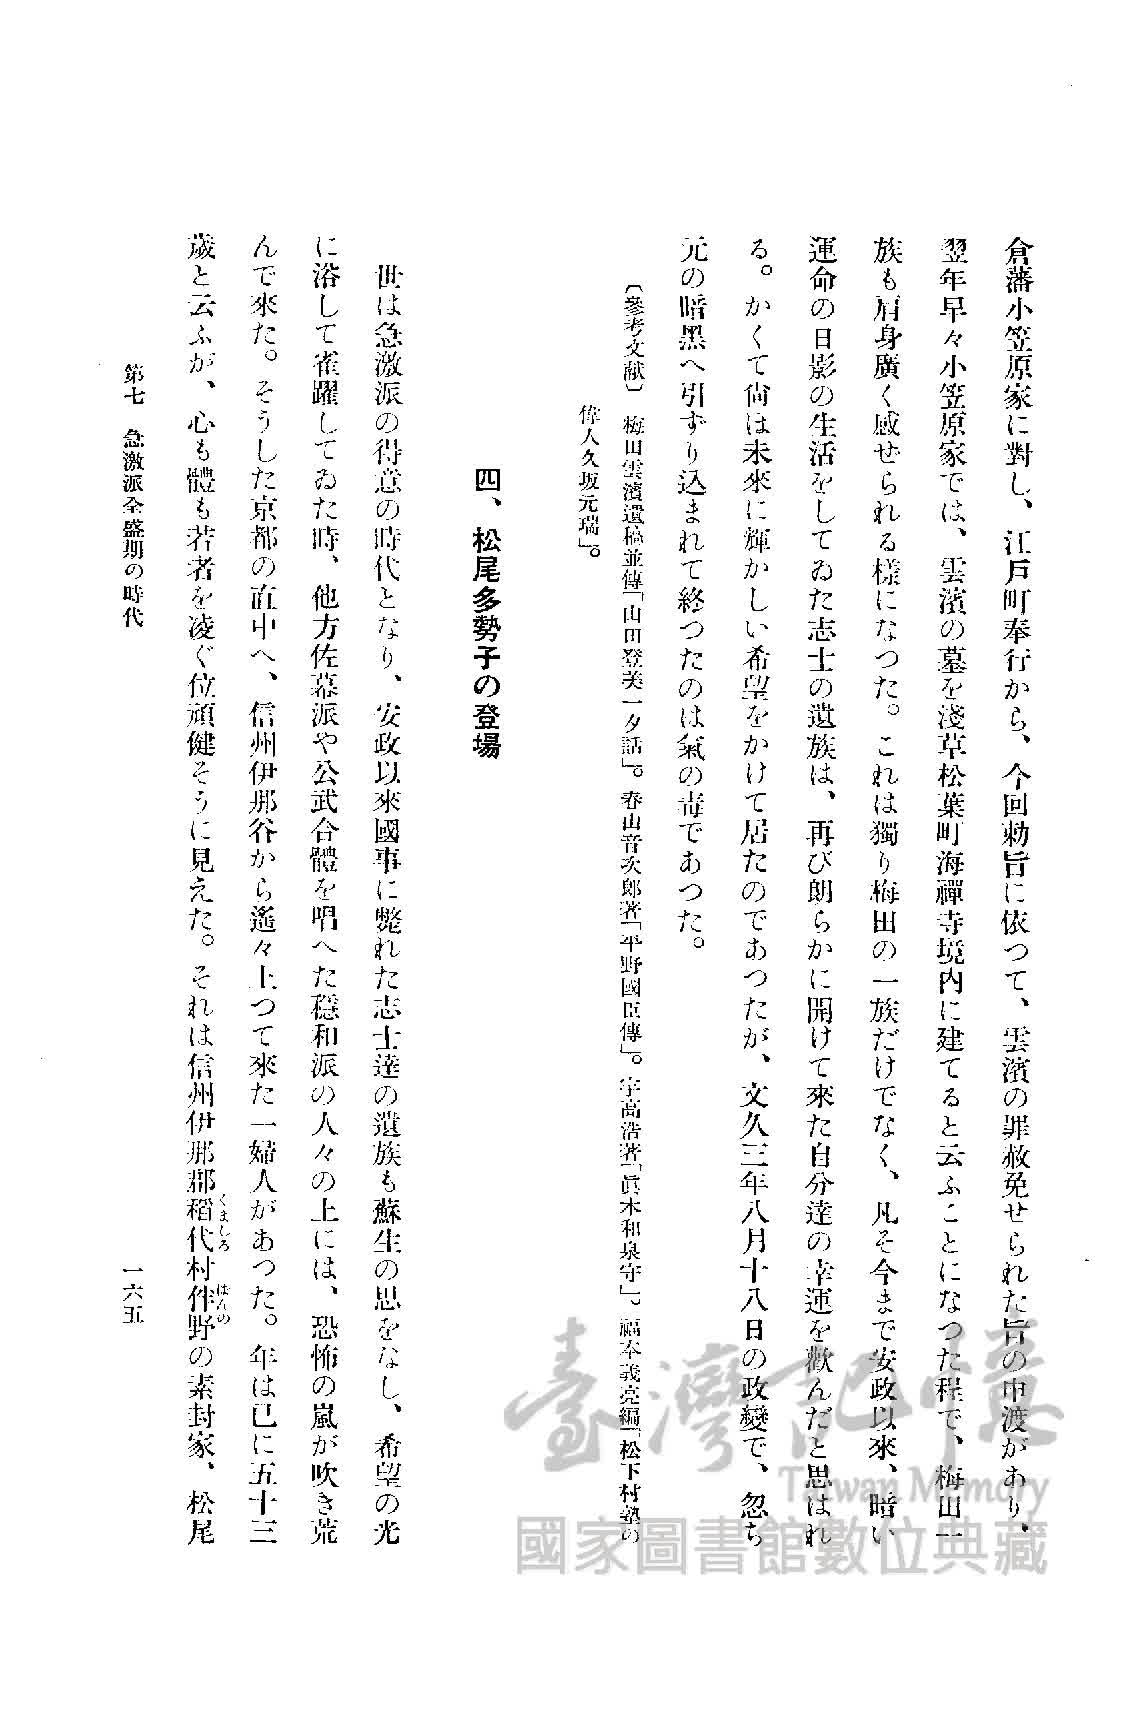 倉藩小笠原家に對し、江戸町奉行から、今回勅旨に依つて、雲濱の罪赦免せられた旨の申渡があり、
翌年早々小笠原家では、雲濱の墓を淺草松葉町海禪寺境内に建てると云ふことになつた程で、梅田一
族も肩身廣く感せられる様になつた。これは獨り梅田の一族だけでなく、凡そ今まで安政以來、暗い
運命の日影の生活をしてゐた志士の遺族は、再び朗らかに開けて來た自分達の幸運を歡んだと思はれ
る。かくて尙ほ未來に輝かしい希望をかけて居たのであつたが、文久三年八月十八日の政變で、忽ち
元の暗黑へ引ずり込まれて終つたのは氣の毒であつた。
〔參考文献〕 梅田雲濱遺稿並傳「山田登美一夕話」。春山音次郎著「平野國臣傳」。宇高浩著「眞木和泉守」。福本義亮編「松下村塾の
偉人久坂元瑞」。
四、松尾多勢子の登場
世は急激派の得意の時代となり、安政以來國事に斃れた志士達の遺族も蘇生の思をなし、希望の光
に浴して雀躍してゐた時、他方佐幕派や公武合體を唱へた穩和派の人々の上には、恐怖の嵐が吹き荒
んで來た。そうした京都の直中へ、信州伊那谷から遙々上つて來た一婦人があつた。年は已に五十三
歲と云ふが、心も體も若者を凌ぐ位頑健そうに見えた。それは信州伊那郡稻代村伴野の素封家、松尾
くましろ
はんの
第七 急激派全盛期の時代
一六五
臺灣記憶
Taiwan Memory
國家圖書館數位典藏